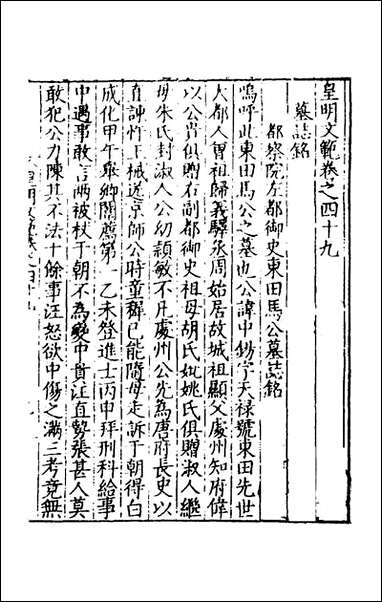 皇明文範卷之四十九
墓誌銘
都察院左都御史東田馬公墓誌銘
嗚呼此東田馬公之墓也公諱中錫字天禄號東田先世
大都人曽祖歸義驛丞周始居故城祖顯父處州知府偉
以公貴俱贈右副都御史祖母胡氏妣姚氏俱贈淑人繼
母朱氏封淑人公幼頴敏不凡處州公先為唐府長史以
直諫忤王械送京師公時童穉已能隨母走訴于朝得白
成化甲午舉鄉闈薦第一乙未登進士丙申拜刑科給事
中遇事敢言兩被杖于朝不為變中貴汪直勢張甚人莫
敢犯公力陳其不法十餘事汪怒欲中傷之滿三考竟無